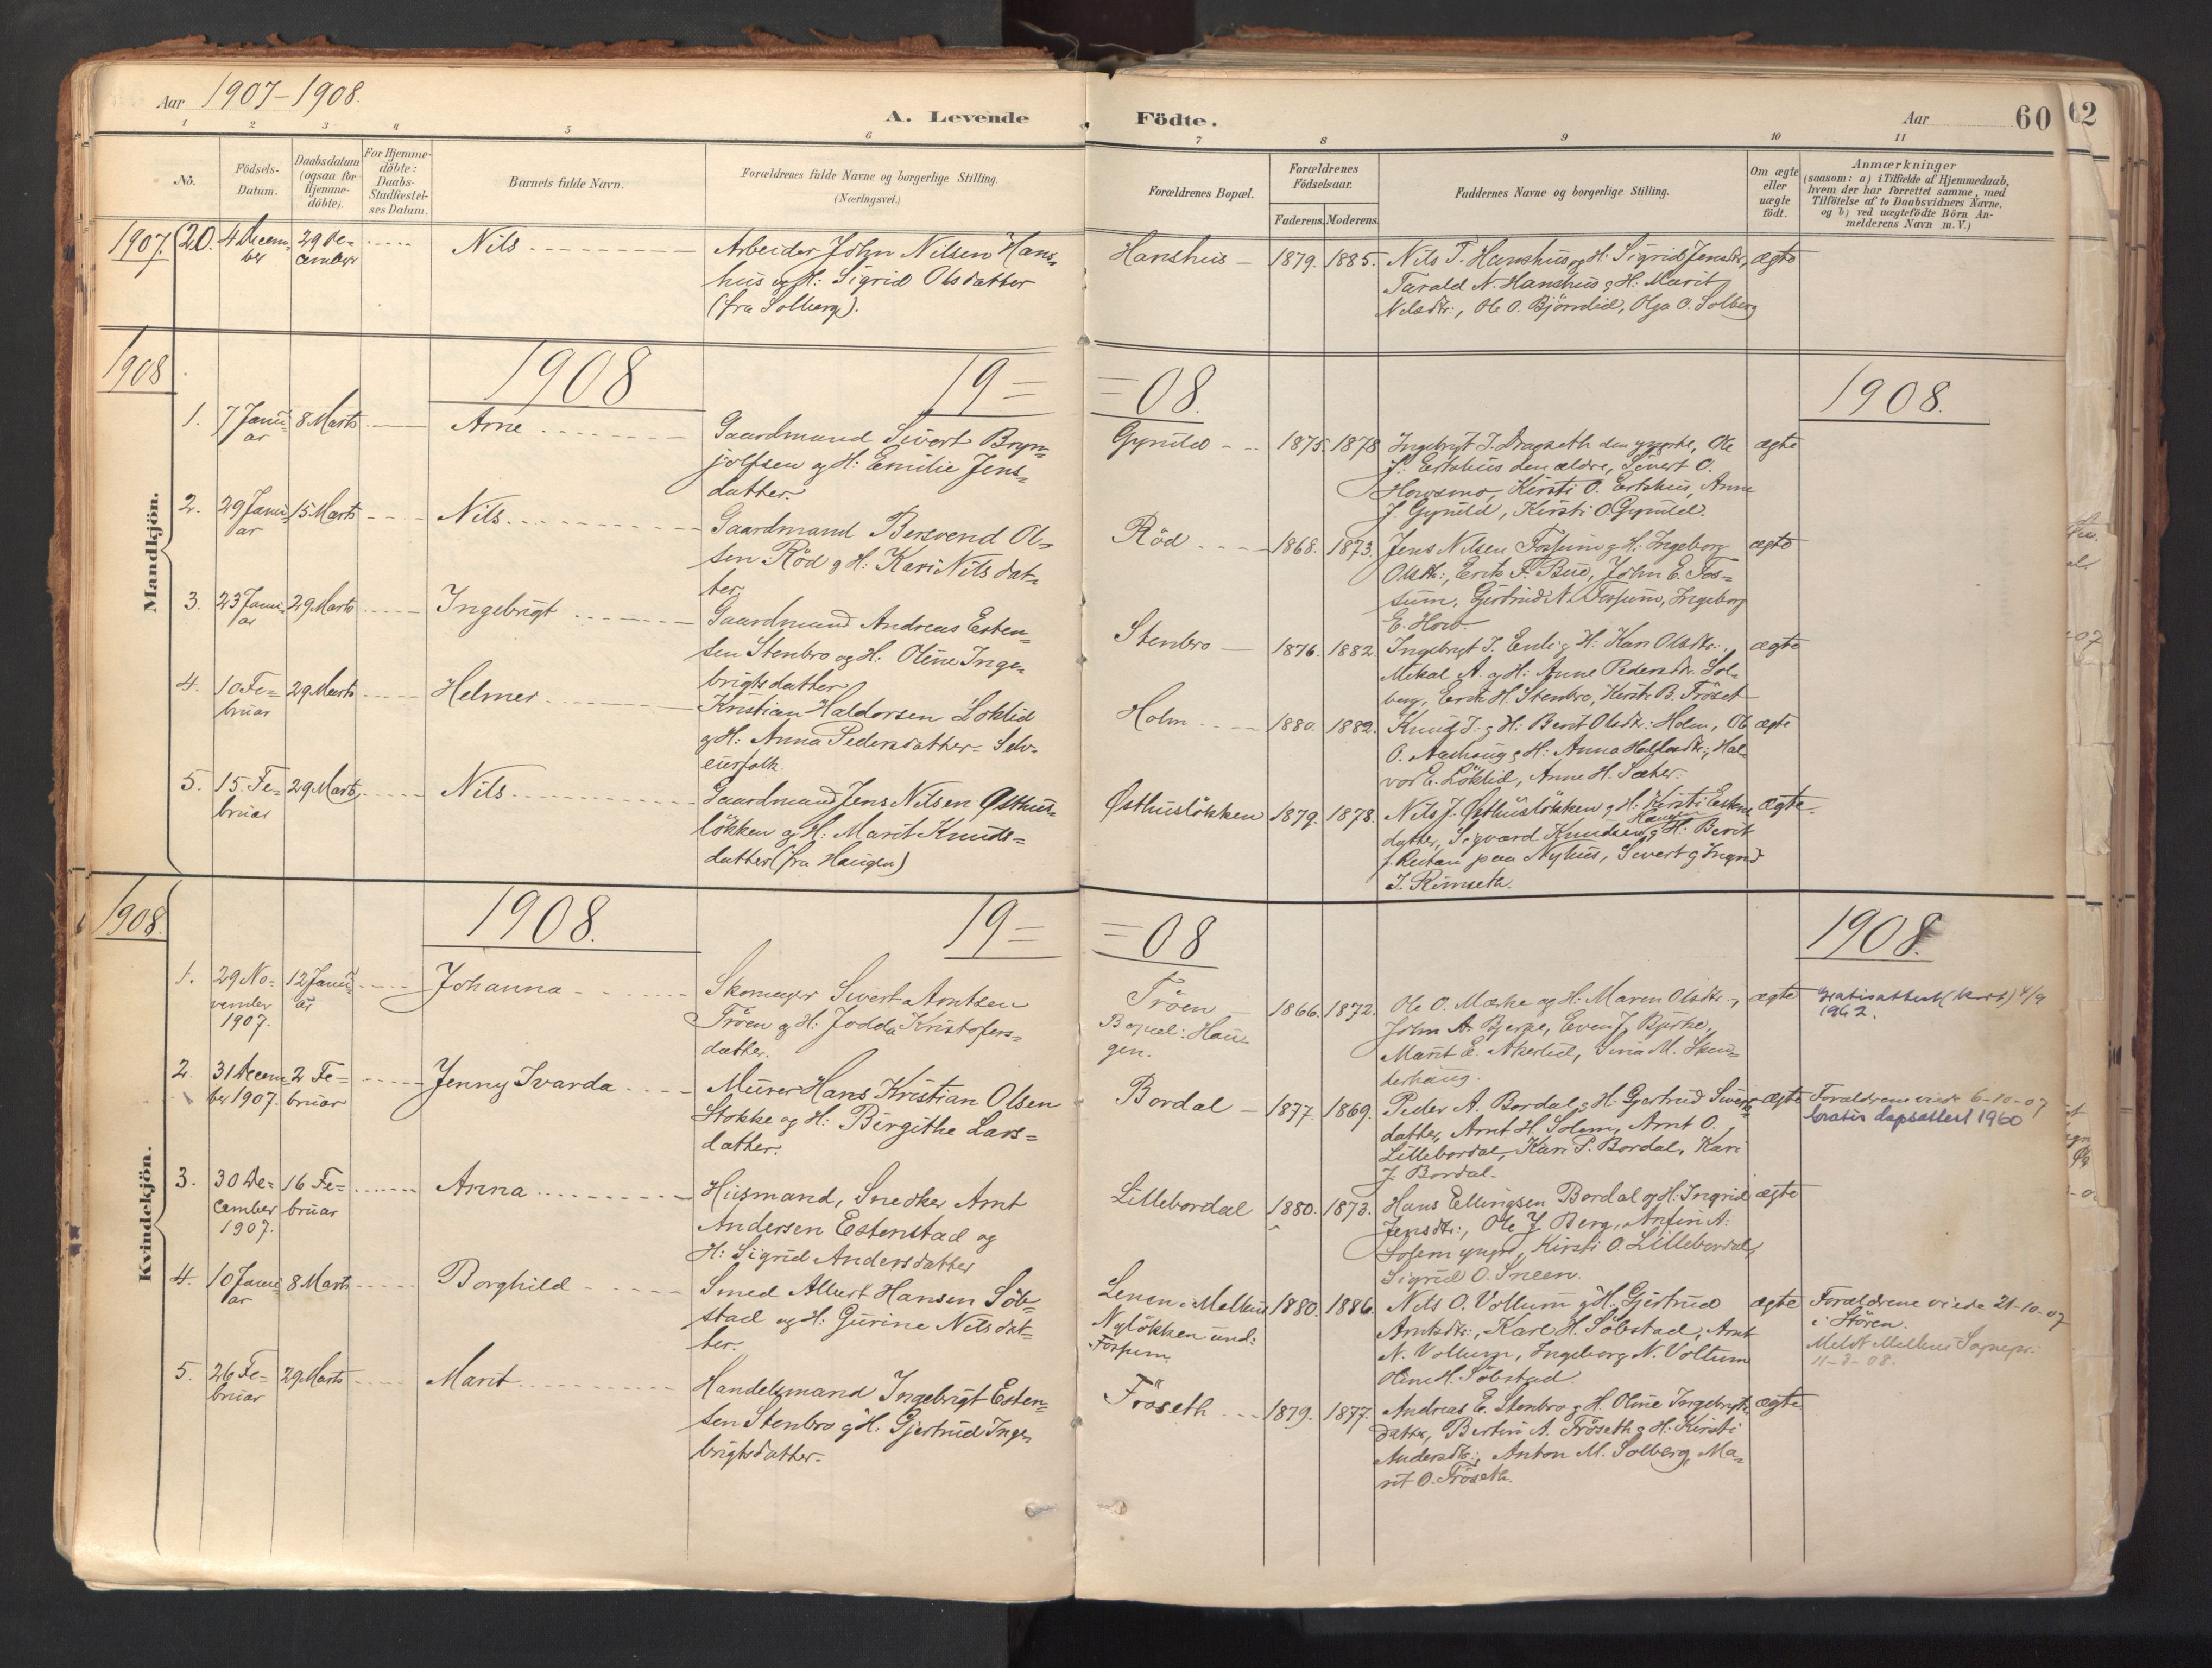 Aar 1907-1908.
A. Levende
1 2 3 4 5 6
No.
Födsels-
Datum.
Daabsdatum
(ogsaa for
Hjemme-
döbte).
For Hjemme-
döbte:
Daabs-
Stadfæstel-
ses Datum.
Barnets fulde Navn.
Forældrenes fulde Navne og borgerlige Stilling.
(Næringsvei.)
Födte.
Aar 60
62
7 8 9 10 11
Forældrenes Bopæl.
Forældrenes
Födselsaar.
Faderens. Moderens.
Faddernes Navne og borgerlige Stilling.
Om ægte
eller
uægte
födt.
Anmærkninger
(saasom: a) i Tilfælde af Hjemmedaab,
hvem der har forrettet samme, med
Tilföielse af to Daabsvidners Navne.
og b) ved uægtefödte Börn An-
melderens Navn m. V.)
1907. (20. 4 Decem-
ber
29 De-
cember
Nils
Arbeider John Nilsen Hans-
hus og H: Sigrid Olsdatter
(fra Solberg).
Hanshus 1879. 1885.
Nils T. Hanshus og H: Sigrid Jensdtr,
Tarald N. Hanshus og H: Marit
Nilsdtr:, Ole O. Bjørnlid, Olga O. Solberg
ægte
1908 1908 19=
=08. 1908.
Mandkjön.
1. 7 Janu-
ar
8 Marts
Arne
Gaardmand Sivert Bryn-
jolfsen og H: Emilie Jens-
datter.
Gynild 1875. 1878
Ingebrigt J. Dragseth den yngste, Ole
J. Ertshus den ældre, Sivert O.
Howsmo, Kirsti O. Ertshus, Anne
J. Gynild, Kirsti O. Gynild.
ægte
2. 29 Janu-
ar
15 Marts
Nils
Gaardmand Bersvend Ol-
sen Röd og H: Kari Nilsdat-
ter.
Röd 1868. 1873.
Jens Nilsen Fossum og H: Ingeborg
Olsdtr:, Erik F. Bue, John E. Fos-
sum, Gjertrud N. Fossum, Ingeborg
E. How.
ægte
3. 23 Janu-
ar
29 Marts
Ingebrigt
Gaardmand Andreas Esten-
sen Stenbro og H: Oline Inge-
brigtsdatter
Stenbro 1876. 1882.
Ingebrigt J. Enli og H: Kari Olsdtr:,
Mikal A. og H: Anne Pedersdtr. Sol-
berg, Erik H. Stenbro, Kirsti B. Fröset
ægte
4. 10 Fe-
bruar
29 Marts
Helmer
Kristian Haldorsen Löklid
og H: Anna Pedersdatter- Selv-
eierfolk.
Holm 1880. 1882.
Knud J. og H: Berit Olsdtr: Holm, Ole
O. Aashaug og H: Anna Halfdsdtr:, Hal-
vor E. Löklid, Anne H. Sæter.
ægte
5. 15. Fe-
bruar
29 Marts
Nils
Gaardmand Jens Nilsen Østhus-
lökken og H: Marit Knuds-
datter (fra Haugen)
Østhuslökken 1879. 1878.
Nils J. Østhuslökken og H: Kirsti Estens
Haugen
datter, Sigvard Knudsen og H: Berit
J. Reitan paa Nyhus, Sivert og Ingrid
J. Rimseth.
ægte.
1908. 1908. 19=
=08 1908.
Kvindekjön.
1. 29 No-
vember
1907.
12 Janu-
ar
Johanna
Skomager Sivert Arntsen
Tröen og H: Jodda Kristofers-
datter.
Tröen
Bopæl: Hau-
gen.
1866. 1872.
Ole O. Mærke og H: Maren Olsdtr:,
John A. Bjerke, Even J. Bjerke,
Marit E. Akerlid, Sina M. Skin-
derhaug.
ægte
Gratisattest (kort) 4/9
1962.
2. 31 Decem-
ber 1907.
2 Fe-
bruar
Jenny Ivarda
Murer Hans Kristian Olsen
Stokke og H: Birgithe Lars-
datter.
Bordal 1877. 1869.
Peder A. Bordal og H: Gjertrud Siverts-
datter, Arnt H. Solem, Arnt O.
Lillebordal, Kari P. Bordal, Kari
J. Bordal.
ægte
Forældrene viede 6-10-07
Gratis dåpsattest 1960
3. 30 De-
cember
1907.
16 Fe-
bruar
Anna
Husmand, Snedker Arnt
Andersen Estenstad og
H: Sigrid Andersdatter
Lillebordal 1880. 1873.
Hans Ellingsen Bordal og H: Ingrid
Jensdtr:, Ole J. Berg, Anfin A:
Solem yngre, Kirsti O. Lillebordal,
Sigrid O. Sneen.
ægte
4. 10 Janu-
ar
8 Marts
Borghild
Smed Albert Hansen Söb-
stad og H: Gurine Nilsdat-
ter.
Lenen i Melhus
Nylökken und:
Fossum.
1880. 1886.
Nils O. Vollum og H: Gjertrud
Arntsdtr:, Karl H. Söbstad, Arnt
N. Vollum, Ingeborg N. Vollum
Oline H. Söbstad.
ægte
Forældrene viede 21-10-07
i Stören.
Meldt Melhus Sognepr.
11-3-08.
5. 26 Fe-
bruar
29 Marts
Marit
Handelsmand Ingebrigt Esten-
sen Stenbro og H: Gjertrud Inge-
brigtsdatter.
Fröseth 1879. 1877.
Andreas E. Stenbro og H: Oline Ingebrigts-
datter, Bertin A. Fröseth og H: Kirsti
Andersdtr:, Anton M. Solberg, Ma-
rit O. Fröseth.
ægte